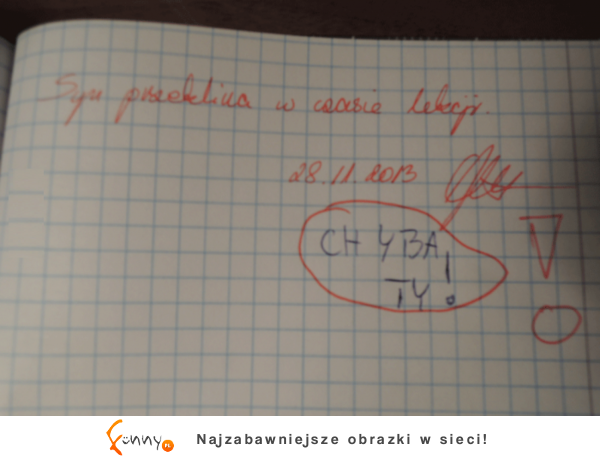 Syn przeklina w czasie lekcji.
28.11.2013
CHYBA
TY!
funny.pl
Najzabawniejsze obrazki w sieci!